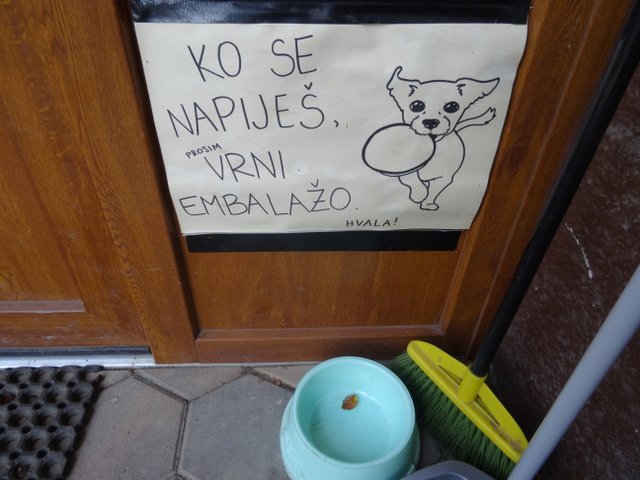 KO SE
NAPIJEŠ,
PROSIM
VRNI
EMBALAŽO.
HVALA!